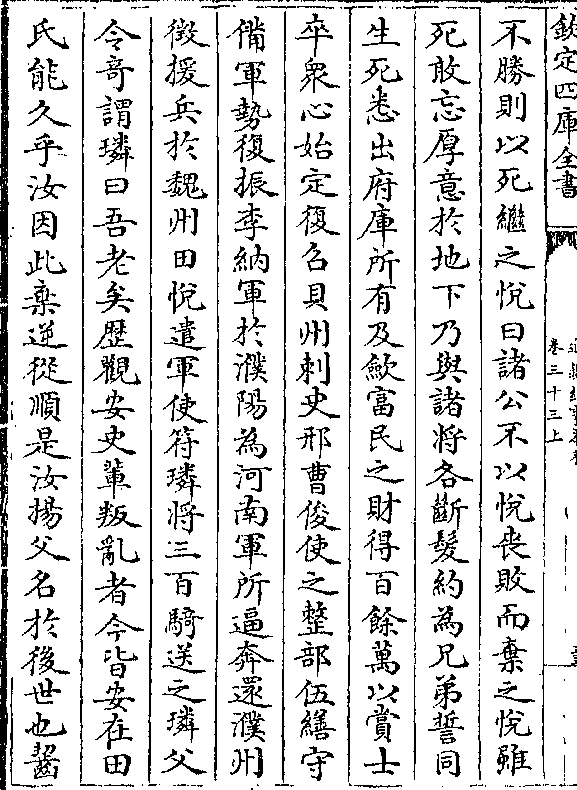 欽定四庫全書
卷三十三上
不勝則以死繼之悅曰諸公不以悅喪敗而棄之悅雖
死敢忘厚意於地下乃與諸將各斷髮約為兄弟誓同
生死悉出府庫所有及歛富民之財得百餘萬以賞士
卒衆心始定復召貝州刺史邢曹俊使之整部伍繕守
備軍勢復振李納軍於濮陽為河南軍所逼奔還濮州
徴援兵於魏州田悅遣軍使符璘將三百騎送之璘父
令奇謂璘曰吾老矣歴觀安史輩叛亂者今皆安在田
氏能久乎汝因此棄逆從順是汝揚父名於後世也齧